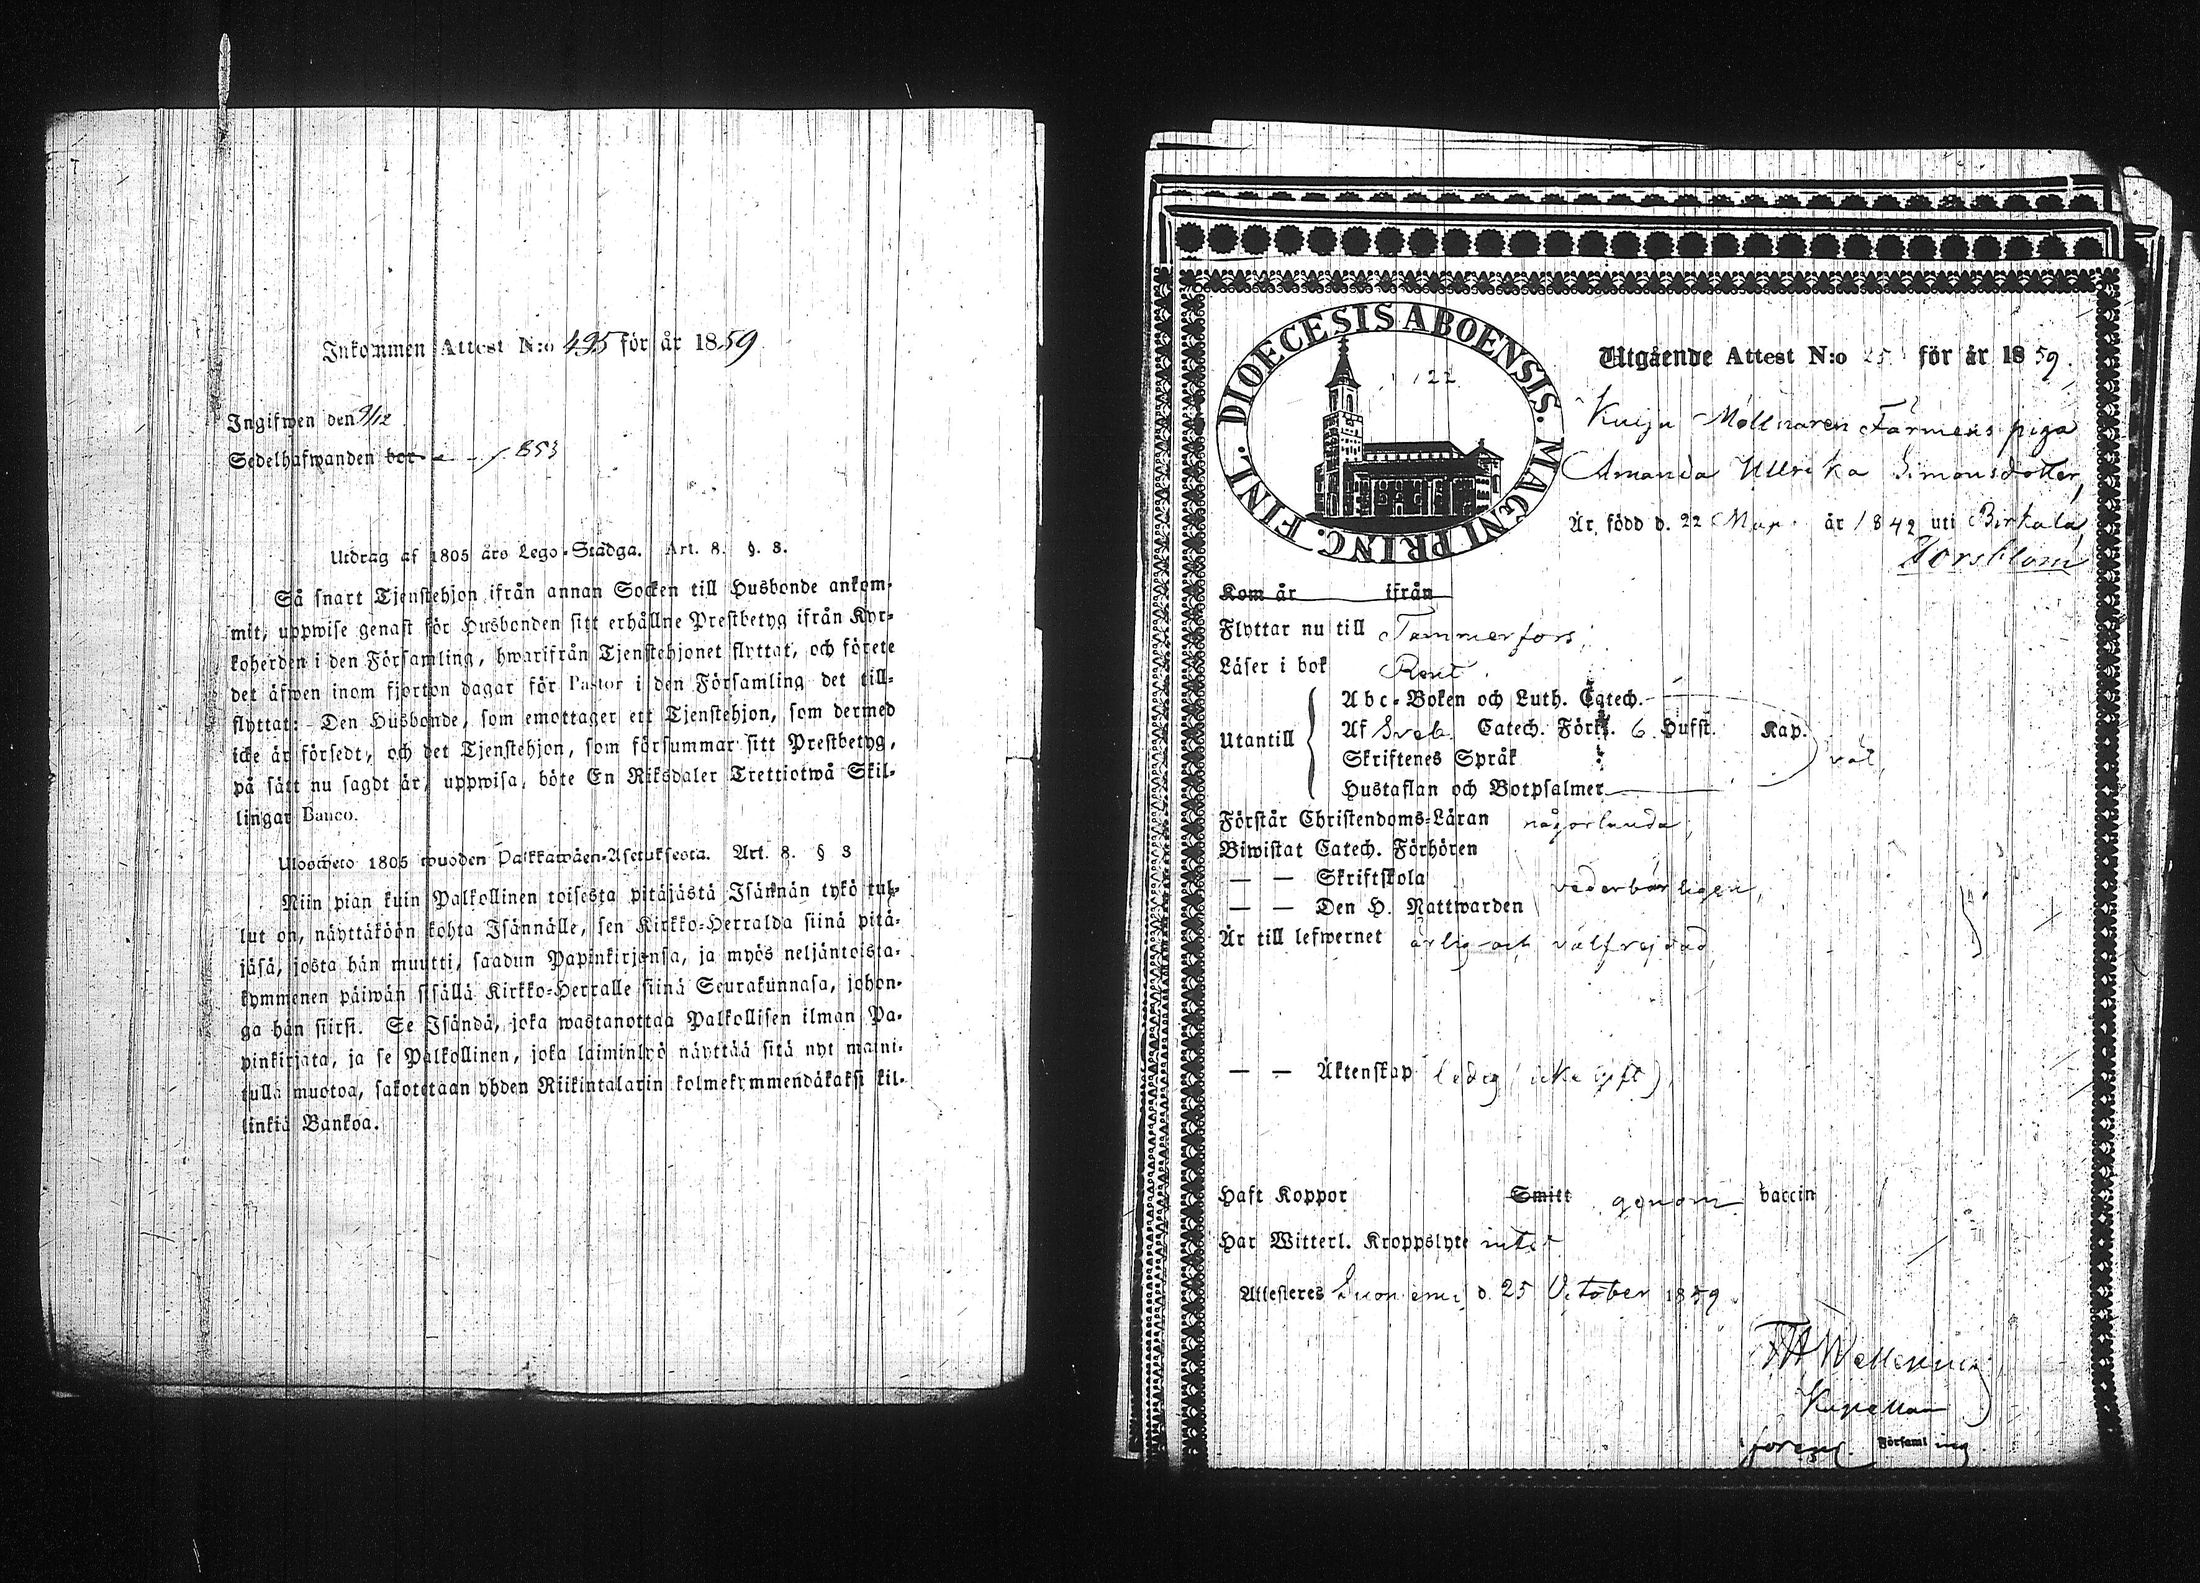 Inkommen Attest N:o 495 för år 1859
Ingifwen den 9/12
Sedelhafwanden bor 853
Utdrag af 1805 års Lego-Stadga. Art. 8. §. 3.
Så snart Tjenstehjon ifrån annan Socken till Husbonde ankom-
mit, uppwise genast för Husbonden sitt erhållne Prestbetyg ifrån Kyr-
koherden i den Församling, hwarifrån Tjenstehjonet flyttat, och förete
det äfwen inom fjorton dagar för Pastor i den Församling det till-
flyttat: Den Husbonde, som emottager ett Tjenstehjon, som dermed
icke är försedt, och det Tjenstehjon, som försummar sitt Prestbetyg,
på sätt nu sagdt är, uppwisa, böte En Riksdaler Trettiotwå Skil-
lingar Banco.
Ulosweto 1805 wuoden Palkkawäen-Asetuksesta. Art. 8. § 3
Niin pian kuin Palkollinen toisesta pitäjästä Isännän tykö tul-
lut on, näyttäköön kohta Isännälle, sen Kirkko-Herralda siinä pitä-
jäsä, josta hän muutti, saadun Papinkirjansa, ja myös neljäntoista-
kymmenen päiwän sisällä Kirkko-Herralle siinä Seurakunnasa, johon-
ga hän siirsi. Se Isändä, joka wastanottaa Palkollisen ilman Pa-
pinkirjata, ja se Palkollinen, joka laiminlyö näyttää sitä nyt maini-
tulla muotoa, sakotetaan yhden Riikintalarin kolmekymmendäkaksi kil-
linkiä Bankoa.
DIOECESIS ABOENSIS. MAGNI PRINC. FINL.
122
Utgående Attest N:o 25 för år 1859.
Kulju Möllnaren Färmens piga
Amanda Ullrika Simonsdotter,
Är född d. 22 Mar. år 1842 uti Birkala
Kom år ifrån
Flyttar nu till Tammerfors;
Läser i bok Rent.
Utantill
Abc-Boken och Luth. Catech.
Af Sveb. Catech. Förkl. 6 Hufst. Kap.
Skriftenes Språk
Hustaflan och Botpsalmer
väl,
Förstår Christendoms-Läran någorlunda,
Biwistat Catech. Förhören
— — Skriftskola
vederbörligen,
— — Den H. Nattwarden
Är till lefwernet ärlig och välfrejdad,
— — Äktenskap ledig (icke gift),
Haft Koppor Smitt genom vaccin
Har Witterl. Kroppslyte intet
Attesteres Suoniemi d. 25 October 1859.
Kapellan
Församling